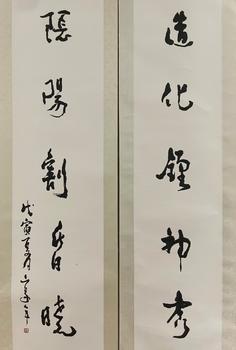 造化鍾神秀
陰陽割昏曉
戊寅夏月